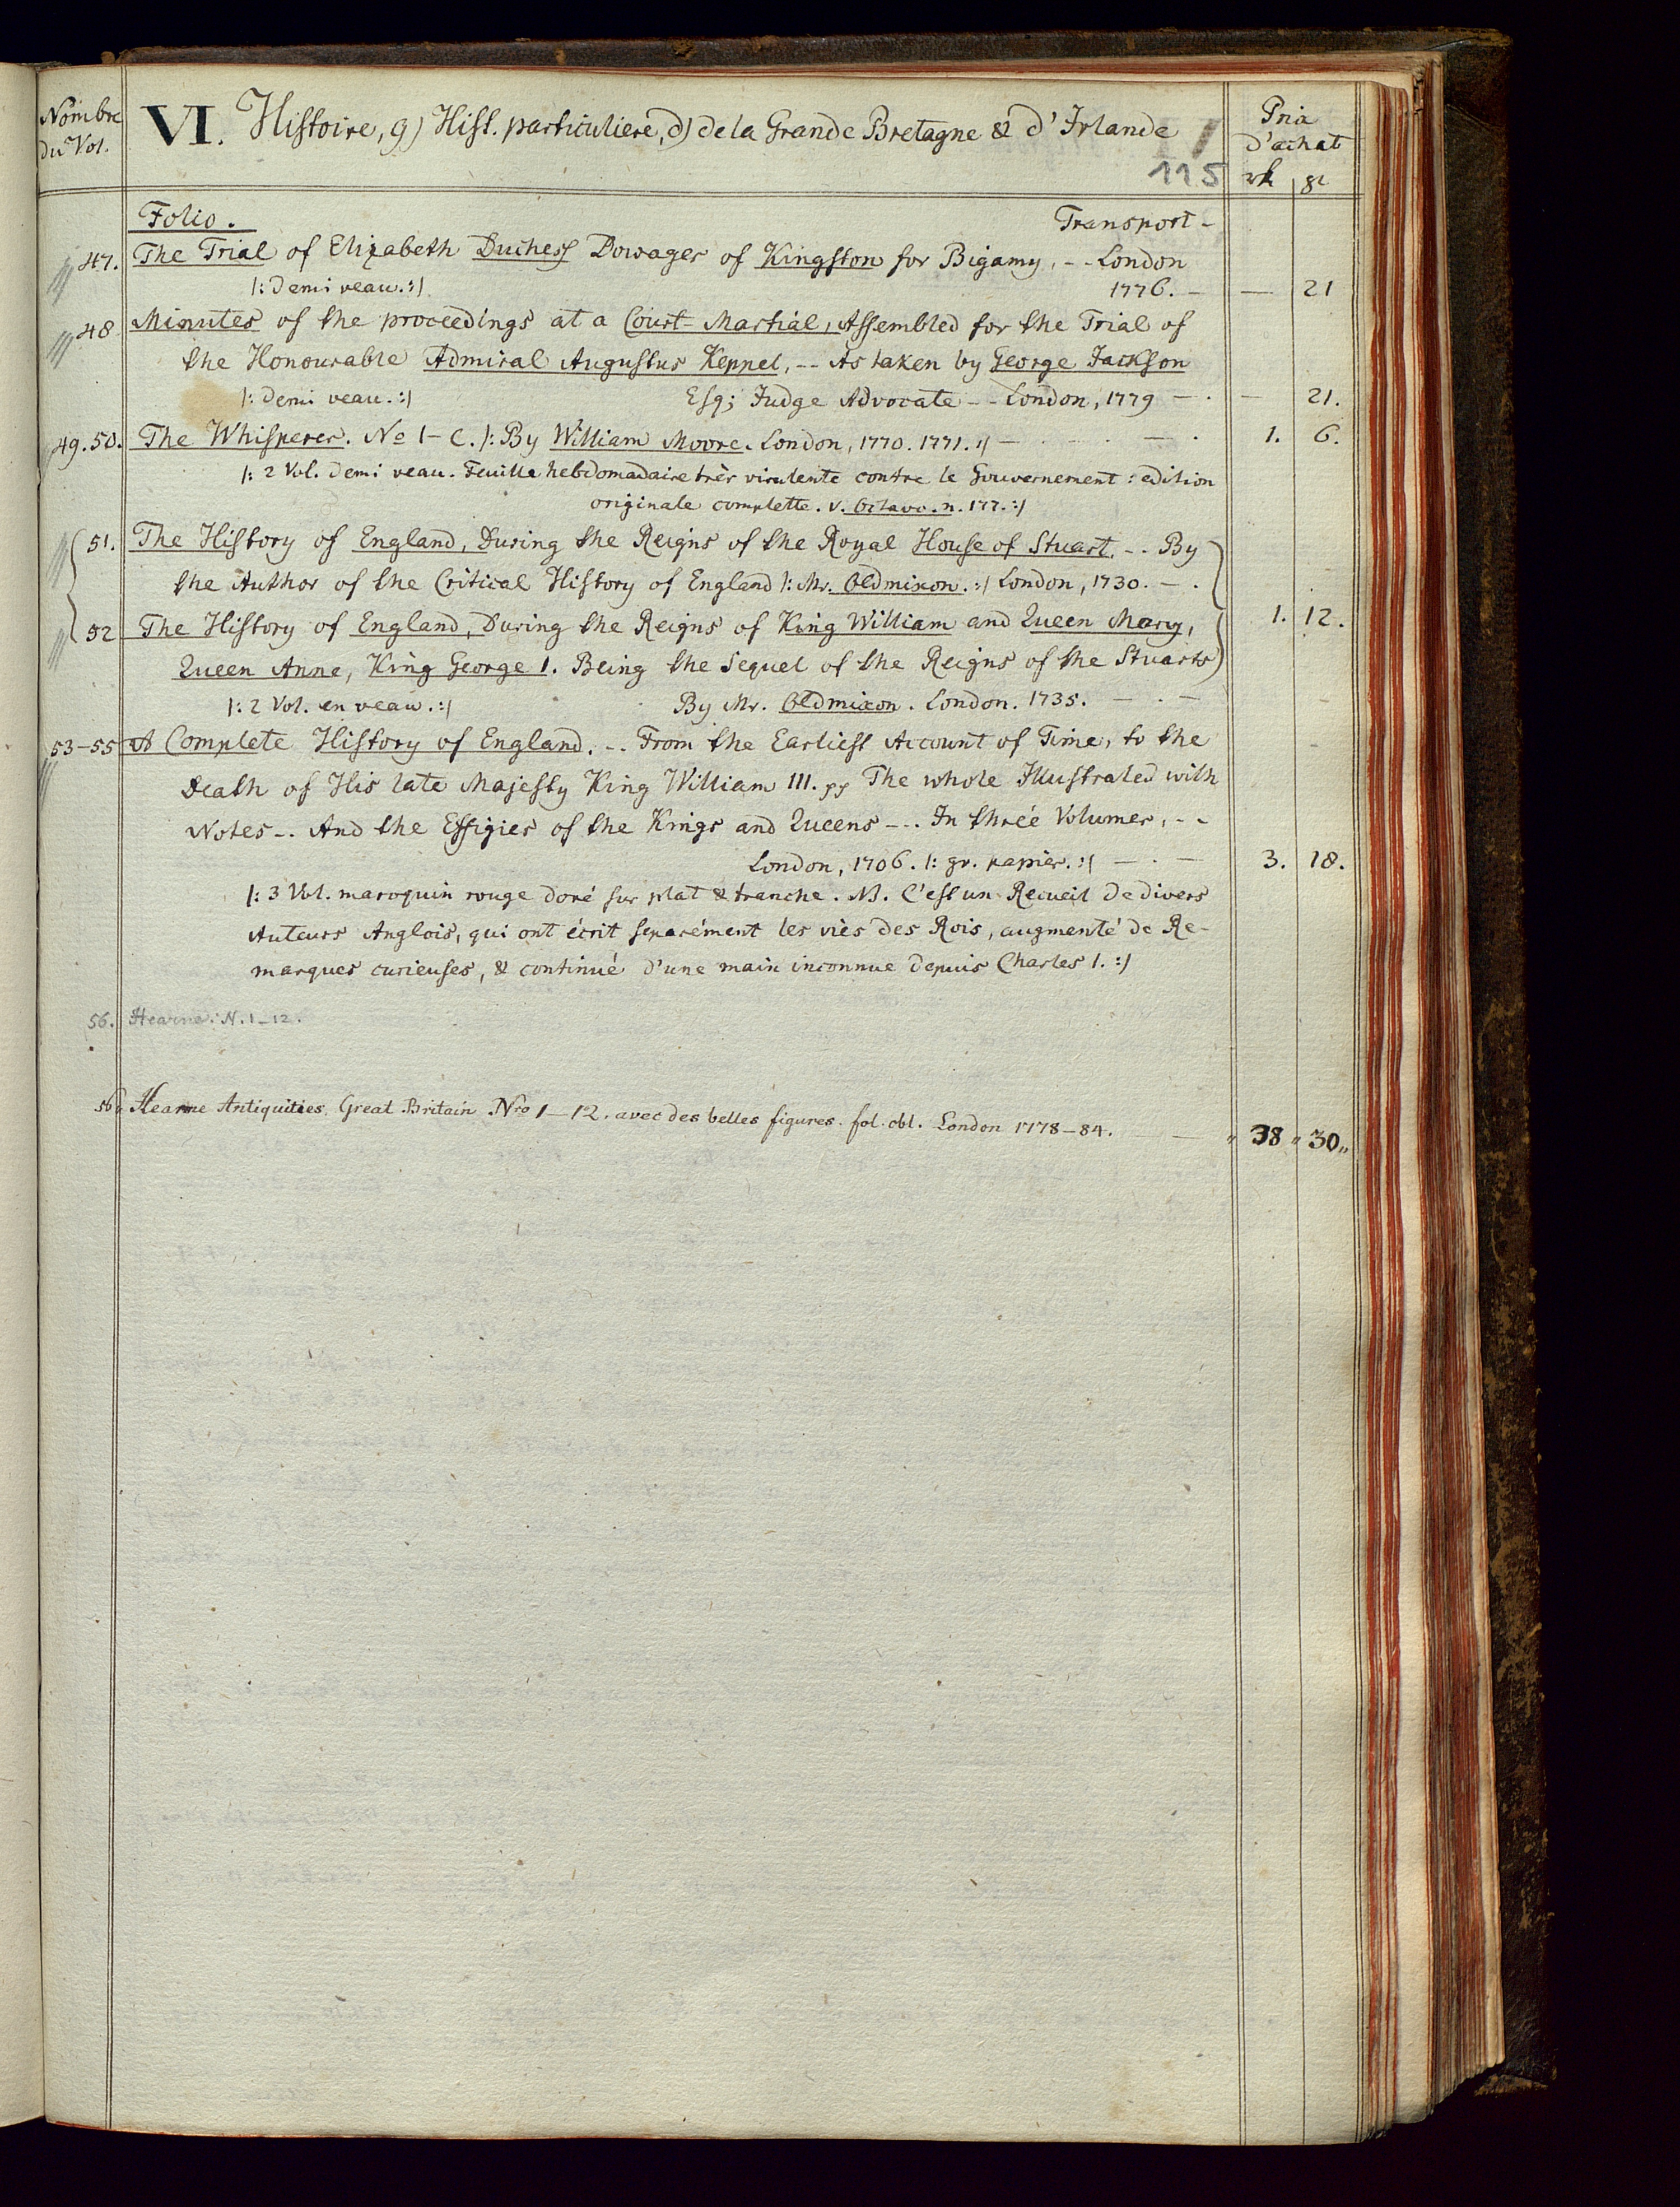 Nombre
du Vol.
VI. Histoire, g) Hist. particuliere, d) de la Grande Bretagne & d'Irlande
115
Prix
d'achat
Folio. Transport -
47. The Trial of Elizabeth Duchess Dowager of Kingston for Bigamy, -- London
|: Demi veau. :| 1776. - — 21
48 Minutes of the proceedings at a Court-Martial, Assembled for the Trial of
the Honourable Admiral Augustus Keppel, -- As taken by George Jackson
|: Demi veau. :| Esq; Judge Advocate -- London, 1779 - . — 21.
49.50. The Whisperer. No 1-C. |: By William Moore. London, 1770. 1771. :| — . — . 1. 6.
|: 2 Vol. Demi veau. Feuille hebdomadaire très virulente contre le Gouvernement : edition
originale complette. v. Octavo. n. 177. :|
51. The History of England, During the Reigns of the Royal House of Stuart. -- By
the Author of the Critical History of England |: Mr. Oldmixon. :| London, 1730. - .
52 The History of England, During the Reigns of King William and Queen Mary, 1. 12.
Queen Anne, King George 1. Being the Sequel of the Reigns of the Stuarts
|: 2 Vol. en veau. :| By Mr. Oldmixon. London. 1735. — . —
53-55 A Complete History of England. -- From the Earliest Account of Time, to the
Death of His late Majesty King William III. pp The whole Illustrated with
Notes -- And the Effigies of the Kings and Queens --- In three Volumes, --
London, 1706. |: gr. papier. :| — . — 3. 18.
|: 3 Vol. maroquin rouge doré sur plat & tranche. NB. C'est un Recueil de divers
Auteurs Anglois, qui ont écrit separément les viès des Rois, augmenté de Re-
marques curieuses, & continué d'une main inconnue depuis Charles 1. :|
56. Hearne. N. 1-12.
56 Hearne Antiquities Great Britain Nro 1-12. avec des belles figures. fol. obl. London 1778-84. — " 38 " 30 "